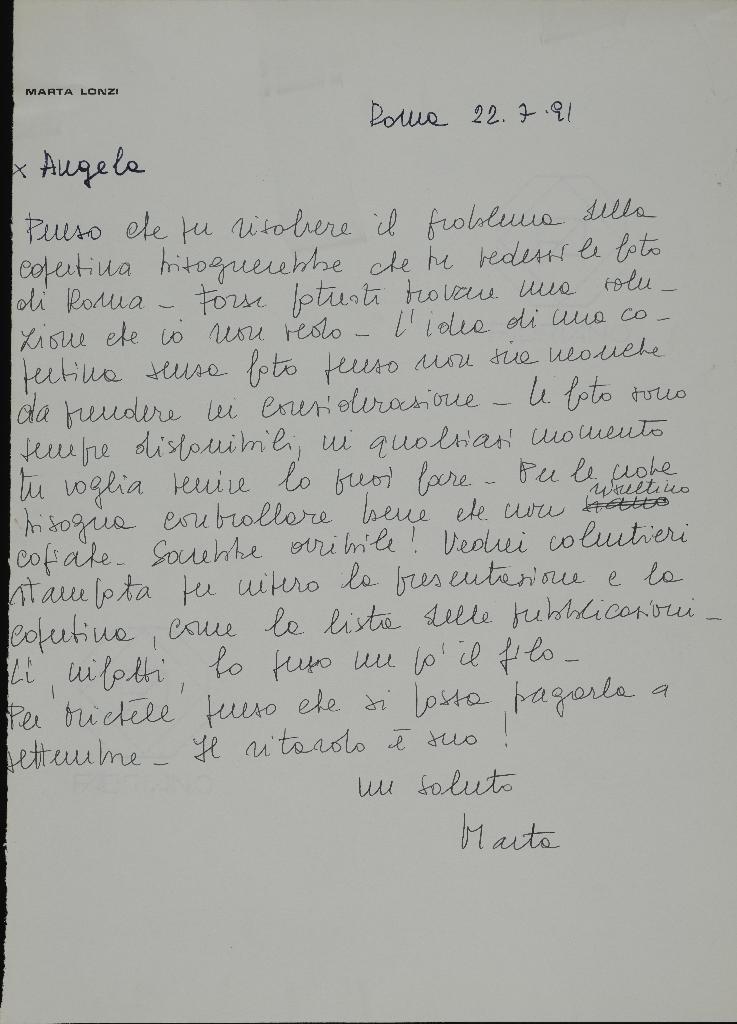 MARTA LONZI
Roma 22.7.91
x Angela
Penso che per risolvere il problema della
copertina bisognerebbe che tu vedessi le foto
di Roma - Forse potresti trovare una solu-
zione che io non vedo - L'idea di una co-
pertina senza foto penso non sia neanche
da prendere in considerazione - Le foto sono
sempre disponibili, in qualsiasi momento
tu voglia venire lo puoi fare - Per le note
bisogna controllare bene che non risultino
copiate - Sarebbe orribile! Vedrei volentieri
stampata per intero la presentazione e la
copertina, come la lista delle pubblicazioni -
Lì, infatti, ho perso un po' il filo -
Per Michèle penso che si possa pagarla a
settembre - Il ritardo è suo!
un saluto
Marta